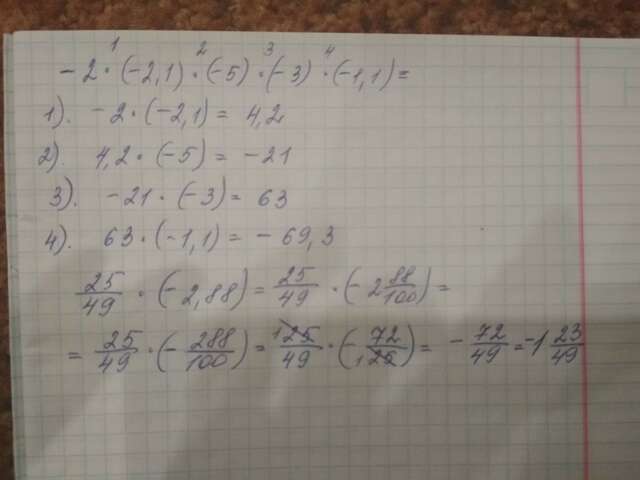 1 2 3 4
-2 · (-2,1) · (-5) · (-3) · (-1,1) =
1). -2 · (-2,1) = 4,2
2). 4,2 · (-5) = -21
3). -21 · (-3) = 63
4). 63 · (-1,1) = -69,3
25/49 · (-2,88) = 25/49 · (-2 88/100) =
= 25/49 · (-288/100) = 1 25/49 · (-72/1 25) = -72/49 = -1 23/49